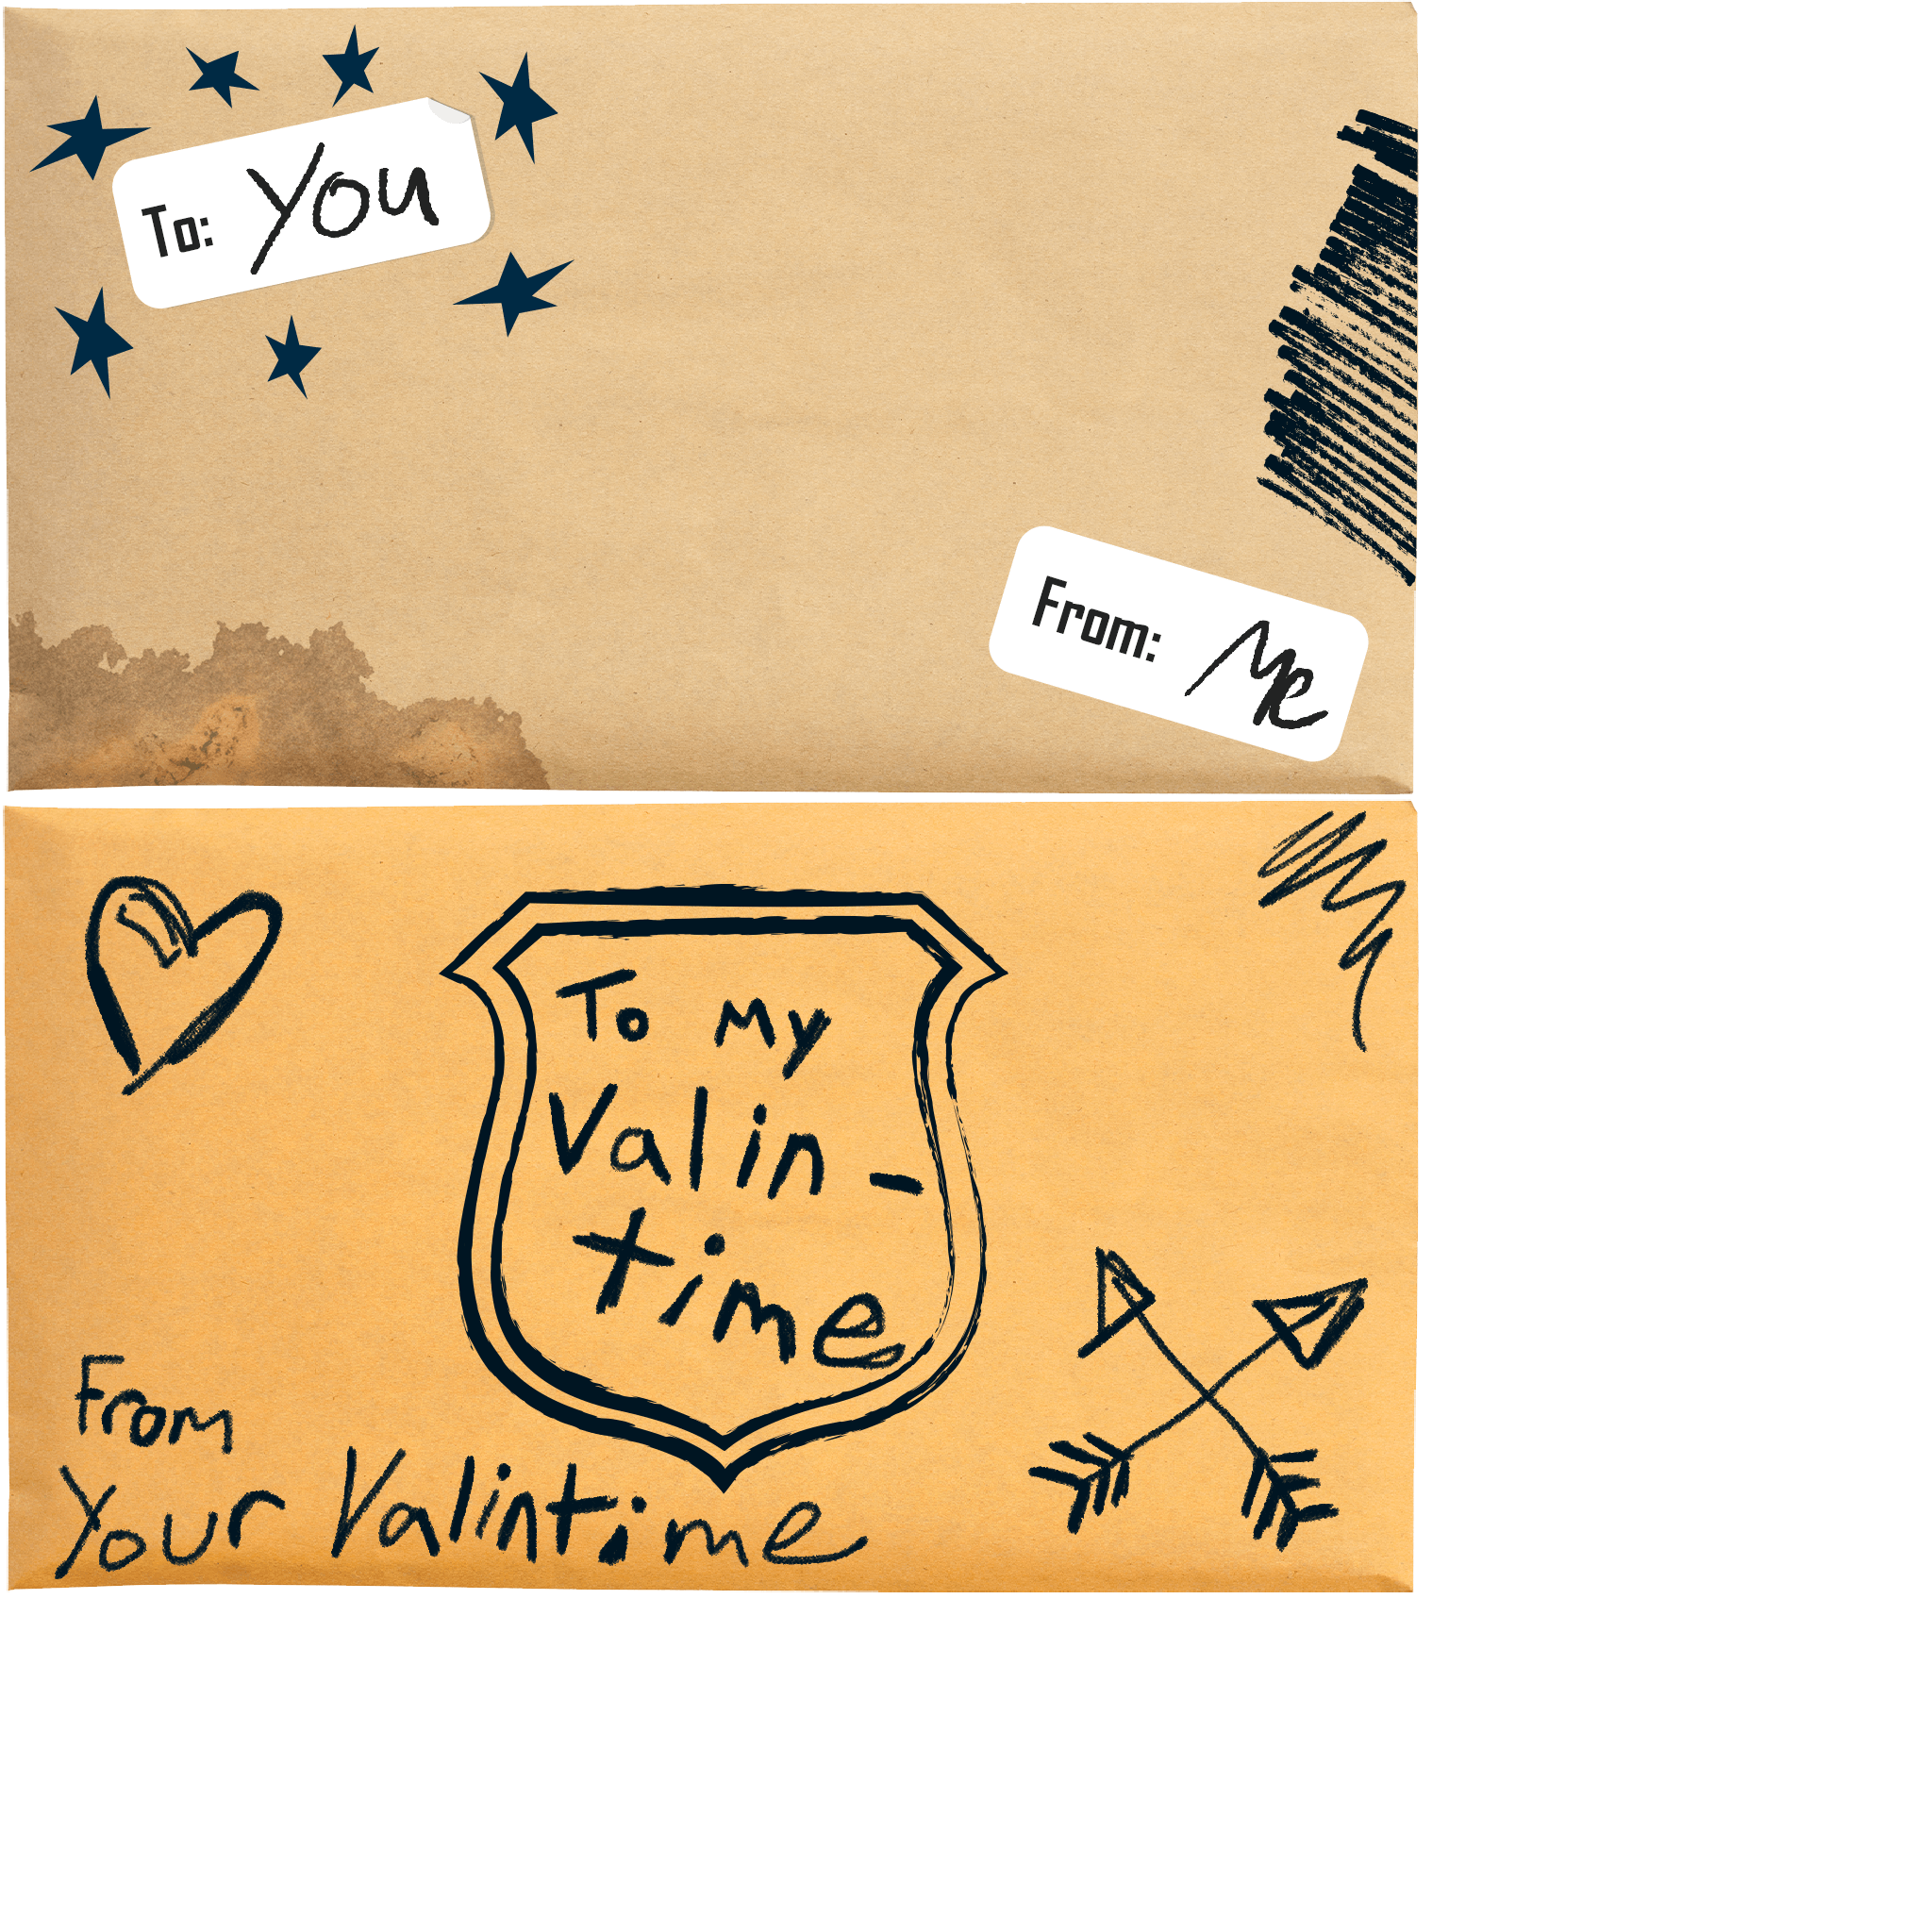 To: You
From: Me
To My
Valin-
time
From
Your Valintime